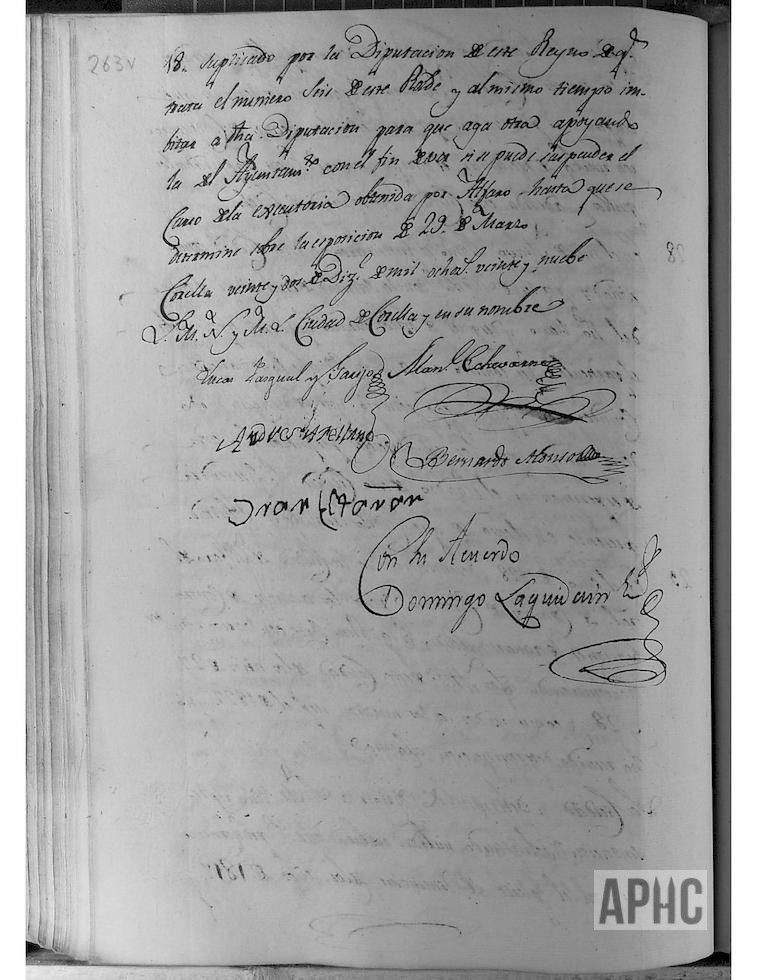 263v
18. suplicado por la Diputacion de este Reyno de q.
trata el numero seis de este Rolde y al mismo tiempo im-
bitar a dha Diputacion para que aga otra apoyando
la del Ayuntam.to con el fin de ver si se puede suspender el
Curso de la executoria obtenida por Alfaro hasta que se
determine sobre la esposicion de 29. de Marzo
Corella veinte y dos de Diz.e de mil ochoc.s veinte y nuebe
L. M. N. y M. L. Ciudad de Corella y en su nombre
Lucas Pasqual y Man.l Echevarria
Andres Arellano
Bernardo Alonso
Juan
Con su Acuerdo
Domingo Laquidain
APHC